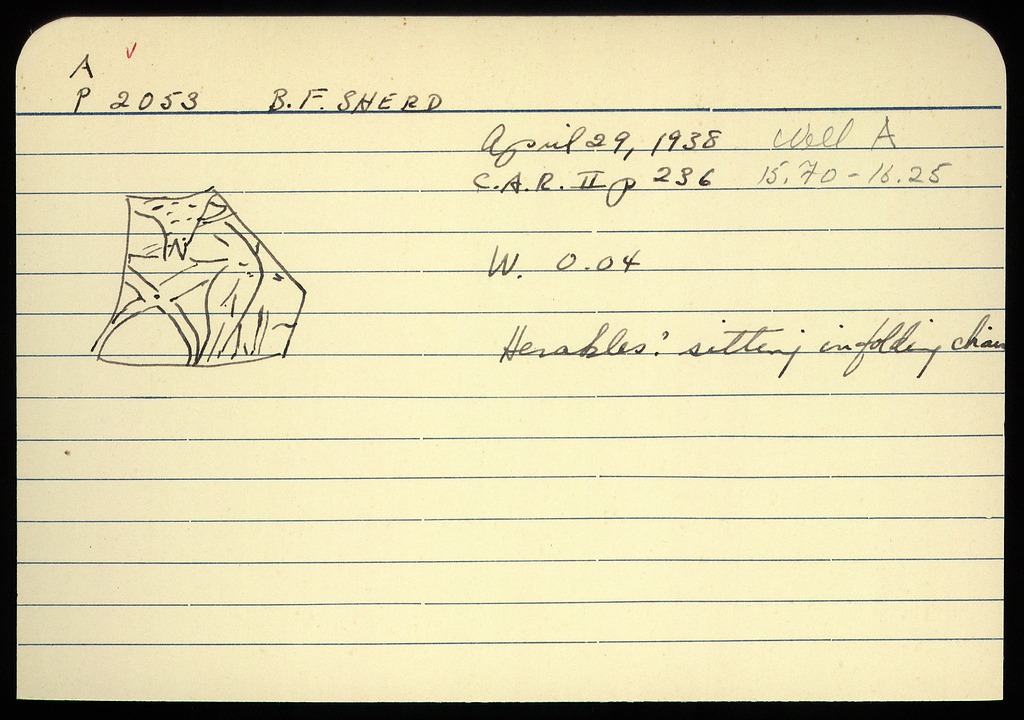 A ✓
P 2053 B.F. SHERD
April 29, 1938 Well A
C.A.R. II p 236 15.70 - 16.25
W. 0.04
Herakles? sitting in folding chair